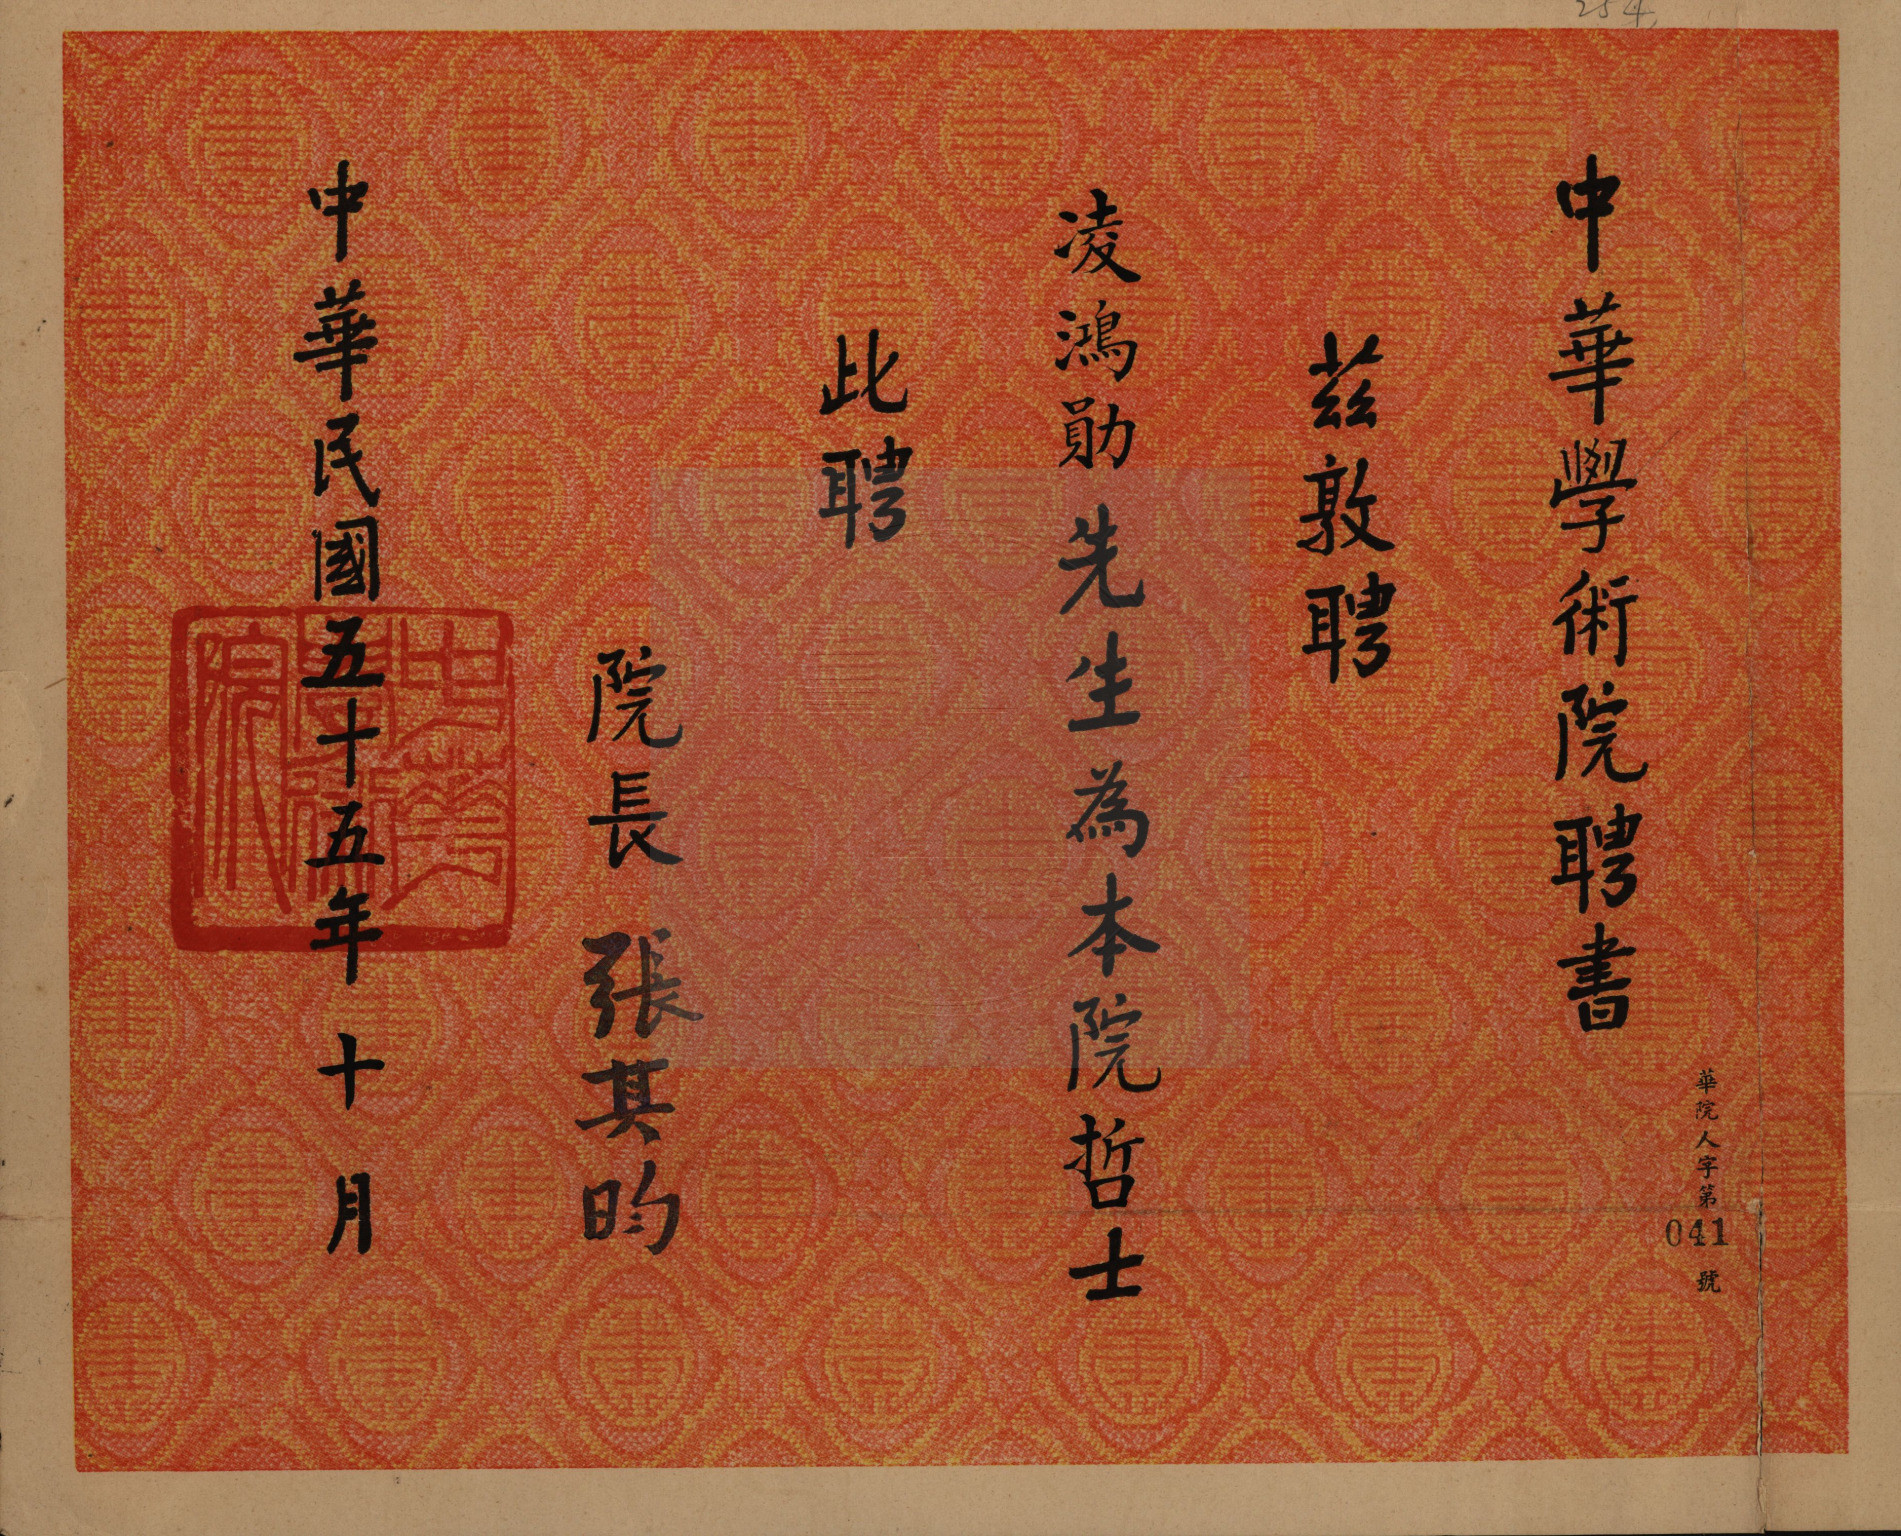 254
中華學術院聘書
華院人字第041號
茲敦聘
凌鴻勛先生為本院哲士
此聘
院長 張其昀
中華民國五十五年十月
中華學術院